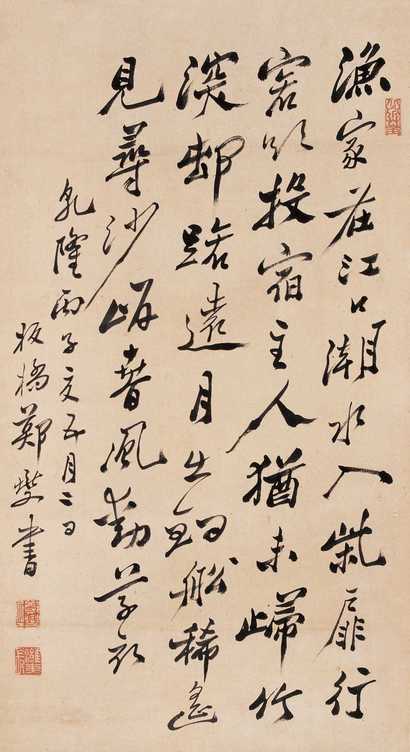 漁家在江口潮水入柴扉行
客欲投宿主人猶未歸竹
深邨路遠月出釣舩稀遙
見尋沙岸春風動草衣
乾隆丙子夏五月二日
板橋鄭燮書